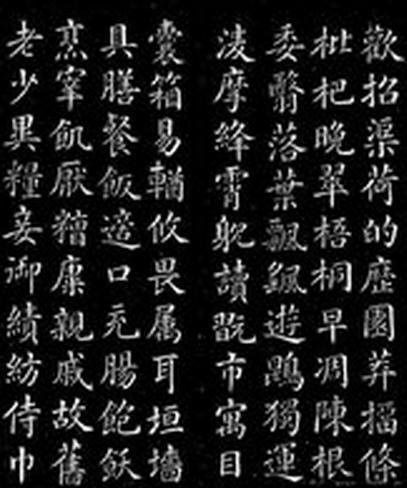 歡招渠荷的歷園莽抽條
枇杷晚翠梧桐早凋陳根
委翳落葉飄颻遊鵾獨運
凌摩絳霄躭讀翫市寓目
囊箱易輶攸畏属耳垣墻
具膳餐飯適口充腸飽飫
烹宰飢厭糟糠親戚故舊
老少異糧妾御績紡侍巾